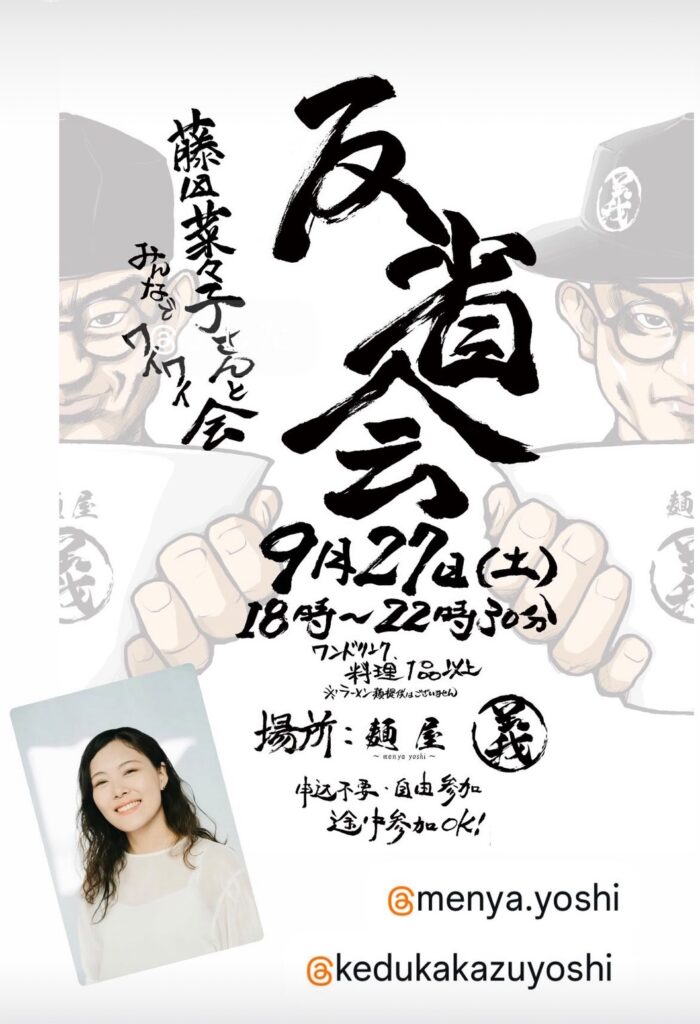 反省会
藤田菜々子さんと会
みんなで
ワイワイ
9月27日(土)
18時～22時30分
ワンドリンク、
料理1品以上
※ラーメン類提供はございません
場所：麺屋 義
～menya yoshi～
申込不要・自由参加
途中参加OK!
@menya.yoshi
@kedukakazuyoshi
義
屋
義
麺
義